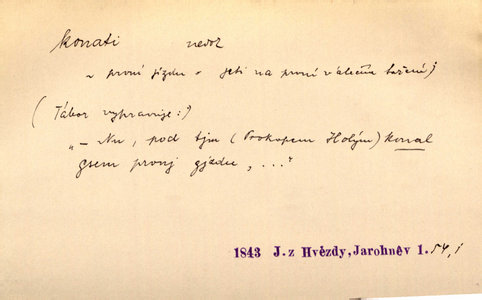 konati nedok
~ první jízdu = jeti na první válečné tažení;
(Tábor vypravuje:)
"— Nu, pod tjm (Prokopem Holým) konal
gsem prvnj gjzdu, ..."
1843 J. z Hvězdy, Jarohněv 1. 54,